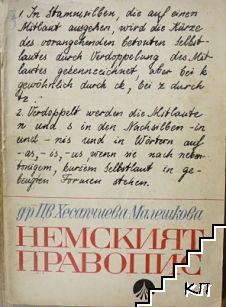 1 In Stammsilben, die auf einen
Mitlaut ausgehen, wird die Kürze
des vorangehenden betonten Selbst-
lautes durch Verdoppelung des Mit-
lautes gekennzeichnet, aber bei k
gewöhnlich durch ck, bei z durch
tz.
2. Verdoppelt werden die Mitlaute
n und s in den Nachsilben -in
und -nis und in Wörtern auf
-as, -is, -us wenn sie nach neben-
tonigem, kurzem Selbstlaut in ge-
beugten Formen stehen.
д-р Цв. Хесапчиева-Малешкова
НЕМСКИЯТ
ПРАВОПИС
КП